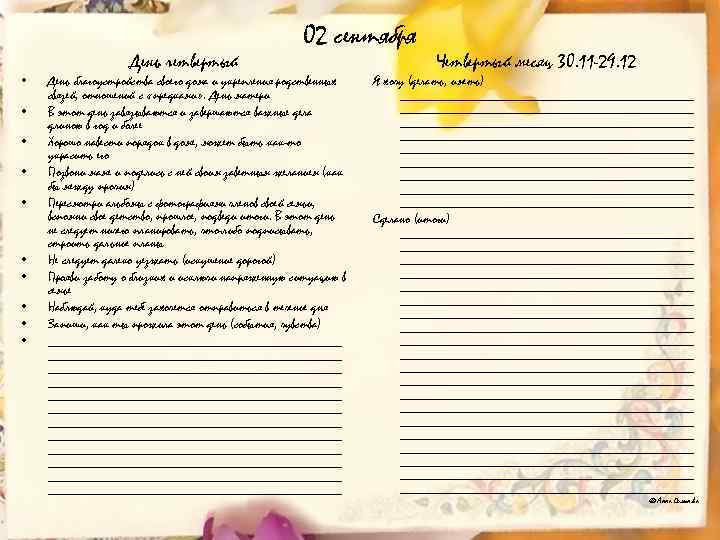 02 сентября
День четвертый
• День благоустройства своего дома и укрепления родственных
связей, отношений с «предками». День матери
• В этот день завязываются и завершаются важные дела
длиною в год и более
• Хорошо навести порядок в доме, может быть как-то
украсить его
• Позвони маме и поделись с ней своим заветным желанием (как
бы между прочим)
• Пересмотри альбомы с фотографиями членов своей семьи,
вспомни свое детство, прошлое, подведи итоги. В этот день
не следует ничего планировать, что-либо подписывать,
строить дальние планы
• Не следует далеко уезжать (искушение дорогой)
• Прояви заботу о близких и исключи напряженную ситуацию в
семье
• Наблюдай, куда тебе захочется отправиться в течение дня
• Запиши, как ты прожила этот день (события, чувства)
•
Четвертый месяц 30.11-29.12
Я хочу (делать, иметь)
Сделано (итоги)
© Анна